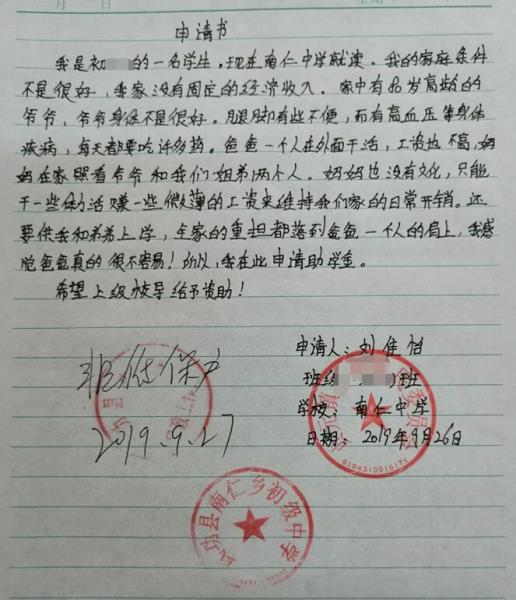 申请书
我是初 的一名学生，现在南仁中学就读。我的家庭条件
不是很好，我家没有固定的经济收入。家中有80岁高龄的
爷爷，爷爷身体不是很好。腿脚有些不便，而有高血压等身体
疾病，每天都要吃许多药。爸爸一个人在外面干活，工资也不高，妈
妈在家照看爷爷和我们姐弟两个人。妈妈也没有文化，只能
干一些的活赚一些微薄的工资来维持我们家的日常开销。还
要供我和弟弟上学，全家的重担都落到爸爸一个人的肩上，我感
觉爸爸真的很不容易！所以，我在此申请助学金。
希望上级领导给予资助！
申请人：刘佳怡
非低保户
班级 班
学校：南仁中学
2019.9.27
日期：2019年9月26日
委员会
6104310016171
武功县南仁乡初级中学